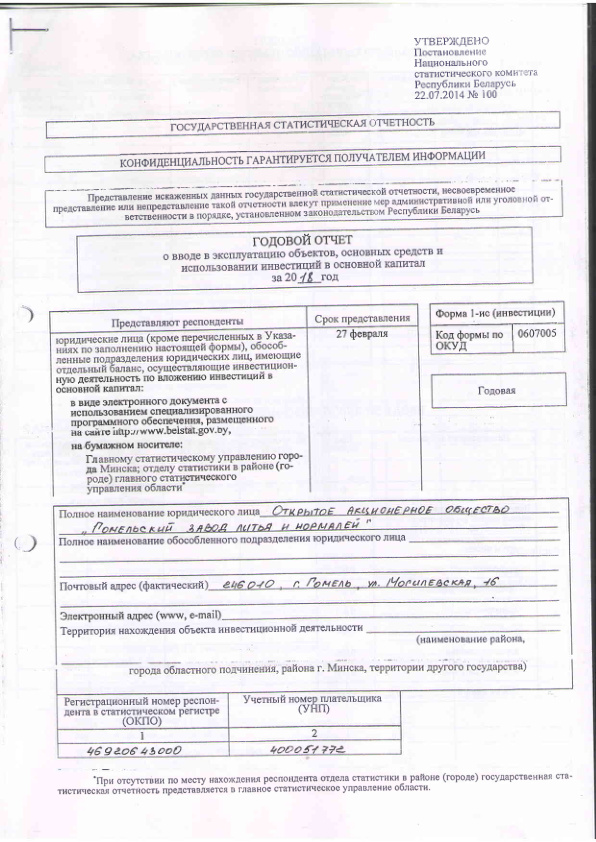 УТВЕРЖДЕНО
Постановление
Национального
статистического комитета
Республики Беларусь
22.07.2014 № 100
ГОСУДАРСТВЕННАЯ СТАТИСТИЧЕСКАЯ ОТЧЕТНОСТЬ
КОНФИДЕНЦИАЛЬНОСТЬ ГАРАНТИРУЕТСЯ ПОЛУЧАТЕЛЕМ ИНФОРМАЦИИ
Представление искаженных данных государственной статистической отчетности, несвоевременное
представление или непредставление такой отчетности влекут применение мер административной или уголовной от-
ветственности в порядке, установленном законодательством Республики Беларусь
ГОДОВОЙ ОТЧЕТ
о вводе в эксплуатацию объектов, основных средств и
использовании инвестиций в основной капитал
за 2018 год
Представляют респонденты
Срок представления
юридические лица (кроме перечисленных в Указа-
ниях по заполнению настоящей формы), обособ-
ленные подразделения юридических лиц, имеющие
отдельный баланс, осуществляющие инвестицион-
ную деятельность по вложению инвестиций в
основной капитал:
в виде электронного документа с
использованием специализированного
программного обеспечения, размещенного
на сайте http://www.belstat.gov.by,
на бумажном носителе:
Главному статистическому управлению горо-
да Минска; отделу статистики в районе (го-
роде) главного статистического
управления области*
27 февраля
Форма 1-ис (инвестиции)
Код формы по ОКУД
0607005
Годовая
Полное наименование юридического лица ОТКРЫТОЕ АКЦИОНЕРНОЕ ОБЩЕСТВО
„ГОМЕЛЬСКИЙ ЗАВОД ЛИТЬЯ И НОРМАЛЕЙ"
Полное наименование обособленного подразделения юридического лица
Почтовый адрес (фактический) 246010, г. ГОМЕЛЬ, ул. МОГИЛЕВСКАЯ, 16
Электронный адрес (www, e-mail)
Территория нахождения объекта инвестиционной деятельности
(наименование района,
города областного подчинения, района г. Минска, территории другого государства)
Регистрационный номер респон-
дента в статистическом регистре
(ОКПО)
Учетный номер плательщика
(УНП)
1
2
46920643000
400051772
*При отсутствии по месту нахождения респондента отдела статистики в районе (городе) государственная ста-
тистическая отчетность представляется в главное статистическое управление области.